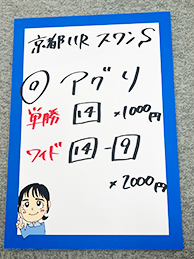 京都11R スワンS
◎ アグリ
単勝 14 ×1000円
ワイド 14-9
×2000円